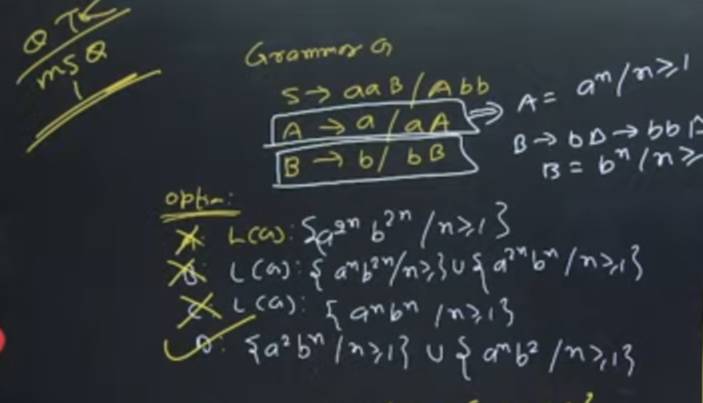 Q TOC
MSQ
1
Grammer G
S → aaB / Abb
A → a / aA ⇒ A = aⁿ / n ≥ 1
B → b / bB B → bB → bbB
B = bⁿ / n ≥
option:
A L(G): {a²ⁿ b²ⁿ / n ≥ 1}
B: L(G): {aⁿb²ⁿ / n ≥ 1} ∪ {a²ⁿbⁿ / n ≥ 1}
C: L(G): {aⁿbⁿ / n ≥ 1}
D: {a²bⁿ / n ≥ 1} ∪ {aⁿb² / n ≥ 1}